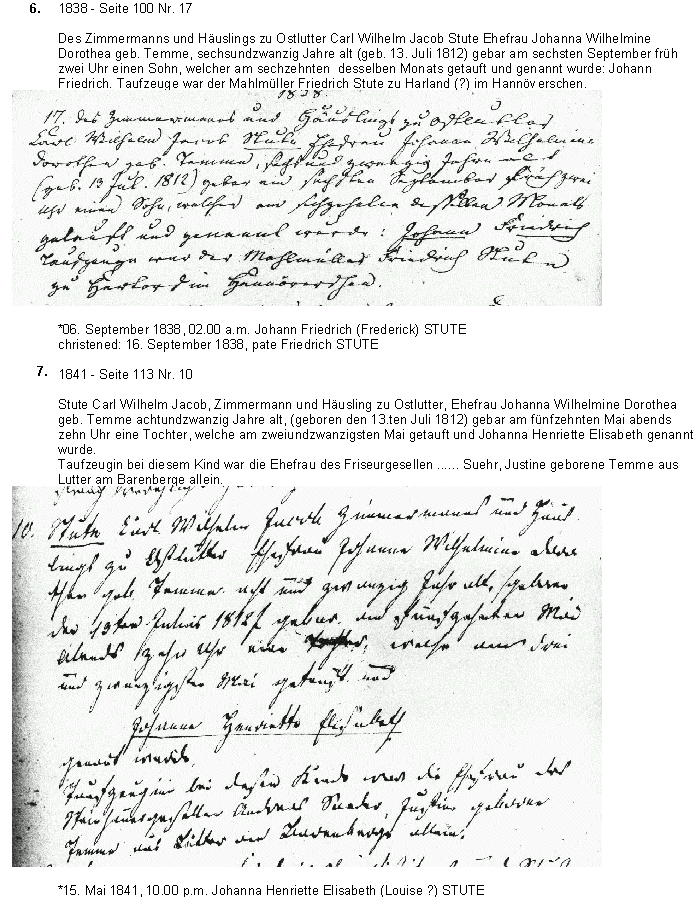 6. 1838 - Seite 100 Nr. 17
Des Zimmermanns und Häuslings zu Ostlutter Carl Wilhelm Jacob Stute Ehefrau Johanna Wilhelmine
Dorothea geb. Temme, sechsundzwanzig Jahre alt (geb. 13. Juli 1812) gebar am sechsten September früh
zwei Uhr einen Sohn, welcher am sechzehnten desselben Monats getauft und genannt wurde: Johann
Friedrich. Taufzeuge war der Mahlmüller Friedrich Stute zu Harland (?) im Hannöverschen.
1838.
17. des Zimmermanns und Häuslings zu Ostlutter
Carl Wilhelm Jacob Stute Ehefrau Johanne Wilhelmine
Dorothea geb. Temme, sechs und zwanzig Jahre alt
(geb. 13 Jul. 1812) gebar am sechsten September früh zwei
Uhr einen Sohn, welcher am desselben Monats
getauft und genannt wurde: Johann Friedrich
Taufzeuge war der Mahlmüller Friedrich Stute
zu im Hannöverschen.
*06. September 1838, 02.00 a.m. Johann Friedrich (Frederick) STUTE
christened: 16. September 1838, pate Friedrich STUTE
7. 1841 - Seite 113 Nr. 10
Stute Carl Wilhelm Jacob, Zimmermann und Häusling zu Ostlutter, Ehefrau Johanna Wilhelmine Dorothea
geb. Temme achtundzwanzig Jahre alt, (geboren den 13.ten Juli 1812) gebar am fünfzehnten Mai abends
zehn Uhr eine Tochter, welche am zweiundzwanzigsten Mai getauft und Johanna Henriette Elisabeth genannt
wurde.
Taufzeugin bei diesem Kind war die Ehefrau des Friseurgesellen ...... Suehr, Justine geborene Temme aus
Lutter am Barenberge allein.
10. Stute Carl Wilhelm Jacob Zimmermanns und Häus
lings zu Ostlutter Ehefrau Johanne Wilhelmine Doro
thea geb. Temme acht und zwanzig Jahr alt, (geboren
den Julius 1812) gebar am fünfzehnten Mai
Abends zehn Uhr eine Tochter, welche am drei
und zwanzigsten Mai getauft und
Johanne Henriette Elisabeth
genannt wurde.
Taufzeugin bei diesem Kinde war die Ehefrau des
Andreas Justine geborene
Temme aus Lutter am Barenberge allein.
*15. Mai 1841, 10.00 p.m. Johanna Henriette Elisabeth (Louise ?) STUTE